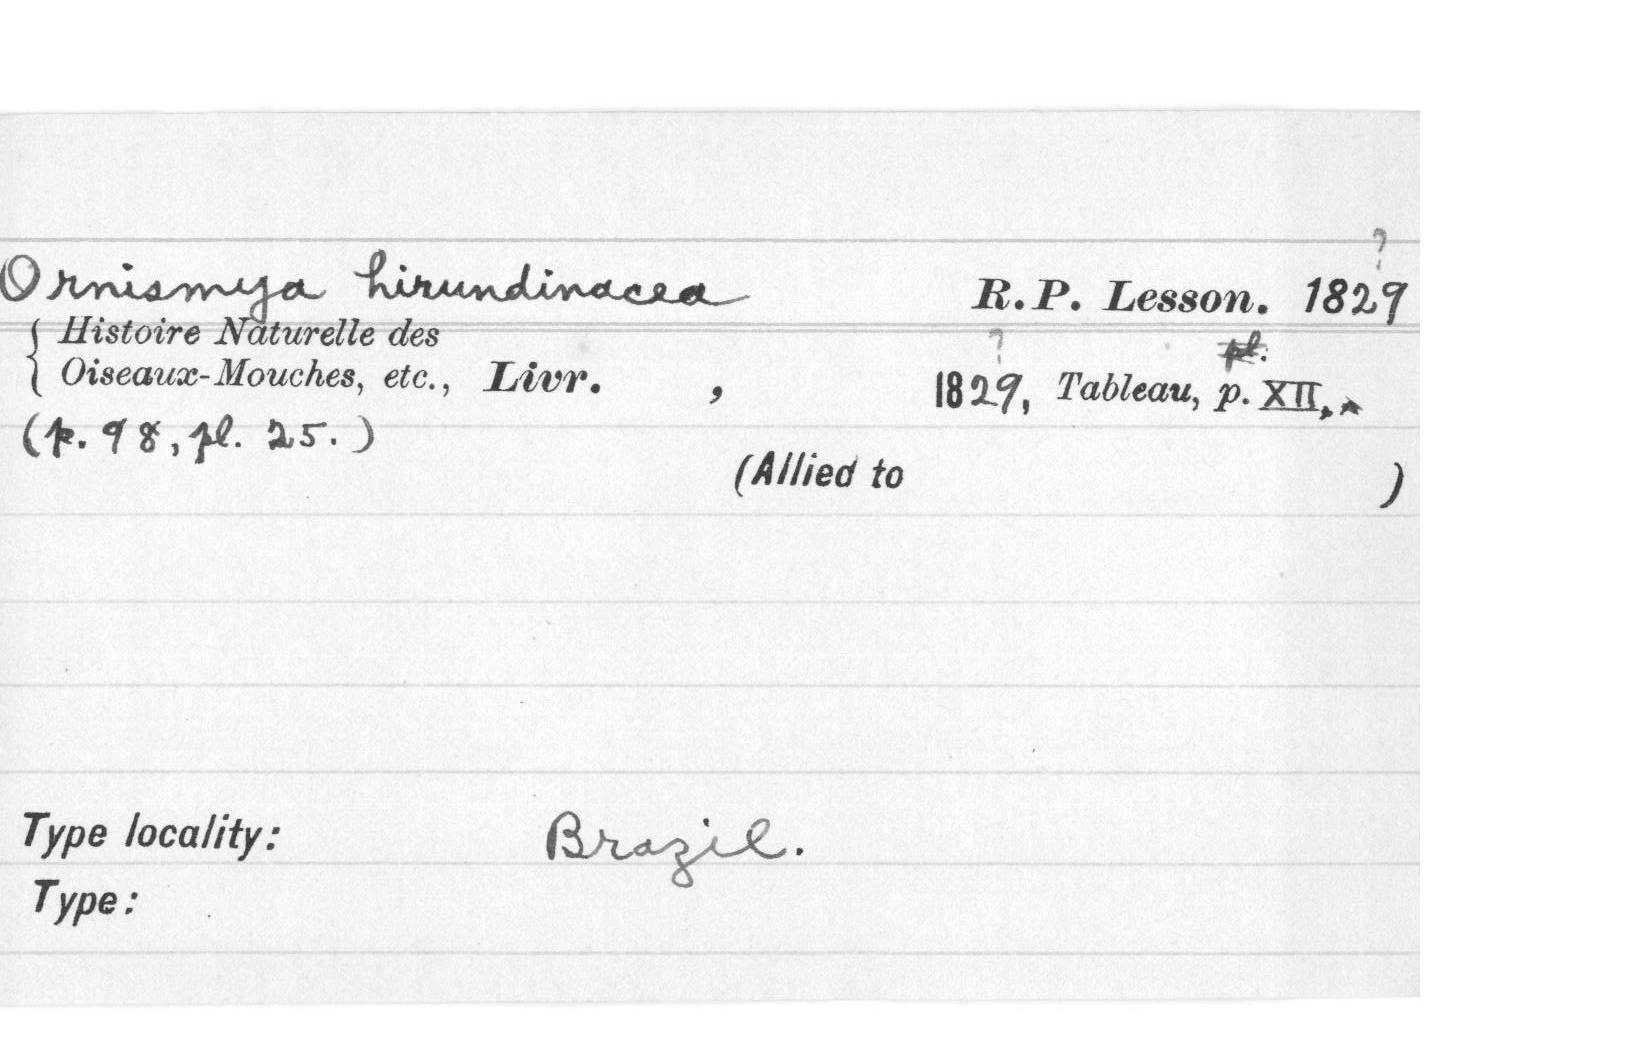 ?
Ornismya hirundinacea R.P. Lesson. 1829
{ Histoire Naturelle des ? pl.
Oiseaux-Mouches, etc., Livr. , 1829, Tableau, p. XII,*
(p. 98, pl. 25.)
(Allied to )
Type locality: Brazil.
Type: